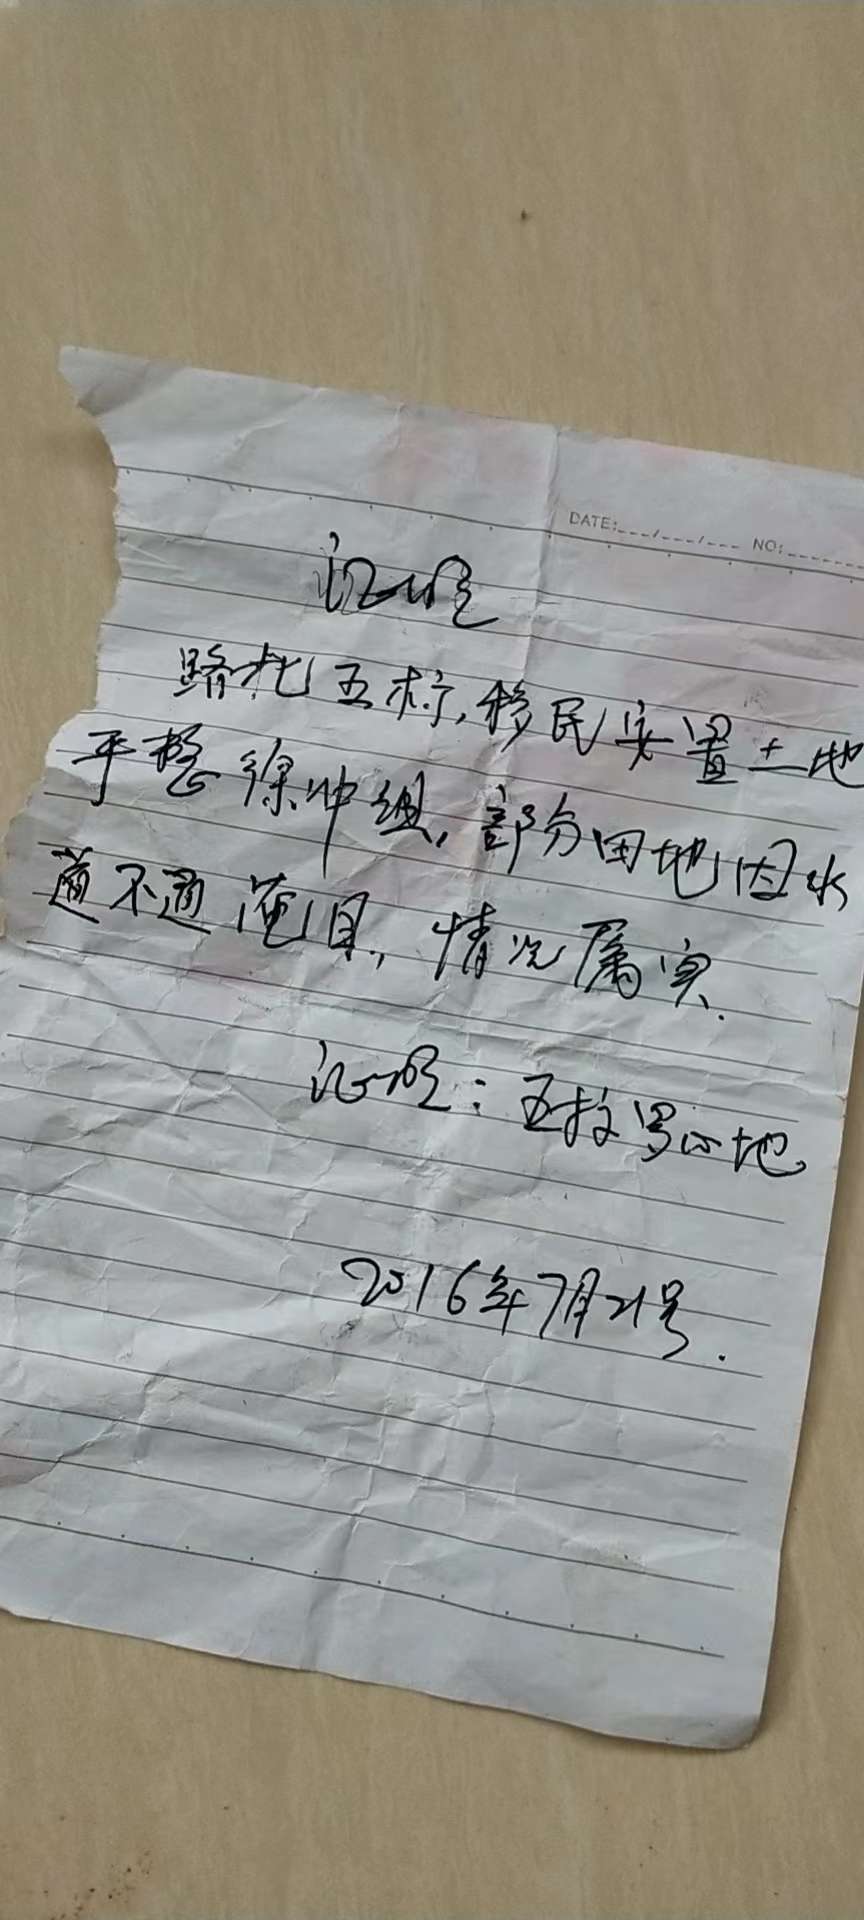 DATE:___/___/___ NO:______
证明
路北五标,移民安置土地
平整徐冲组,部分田地因水
道不通淹,情况属实.
证明:五标
2016年7月21号.